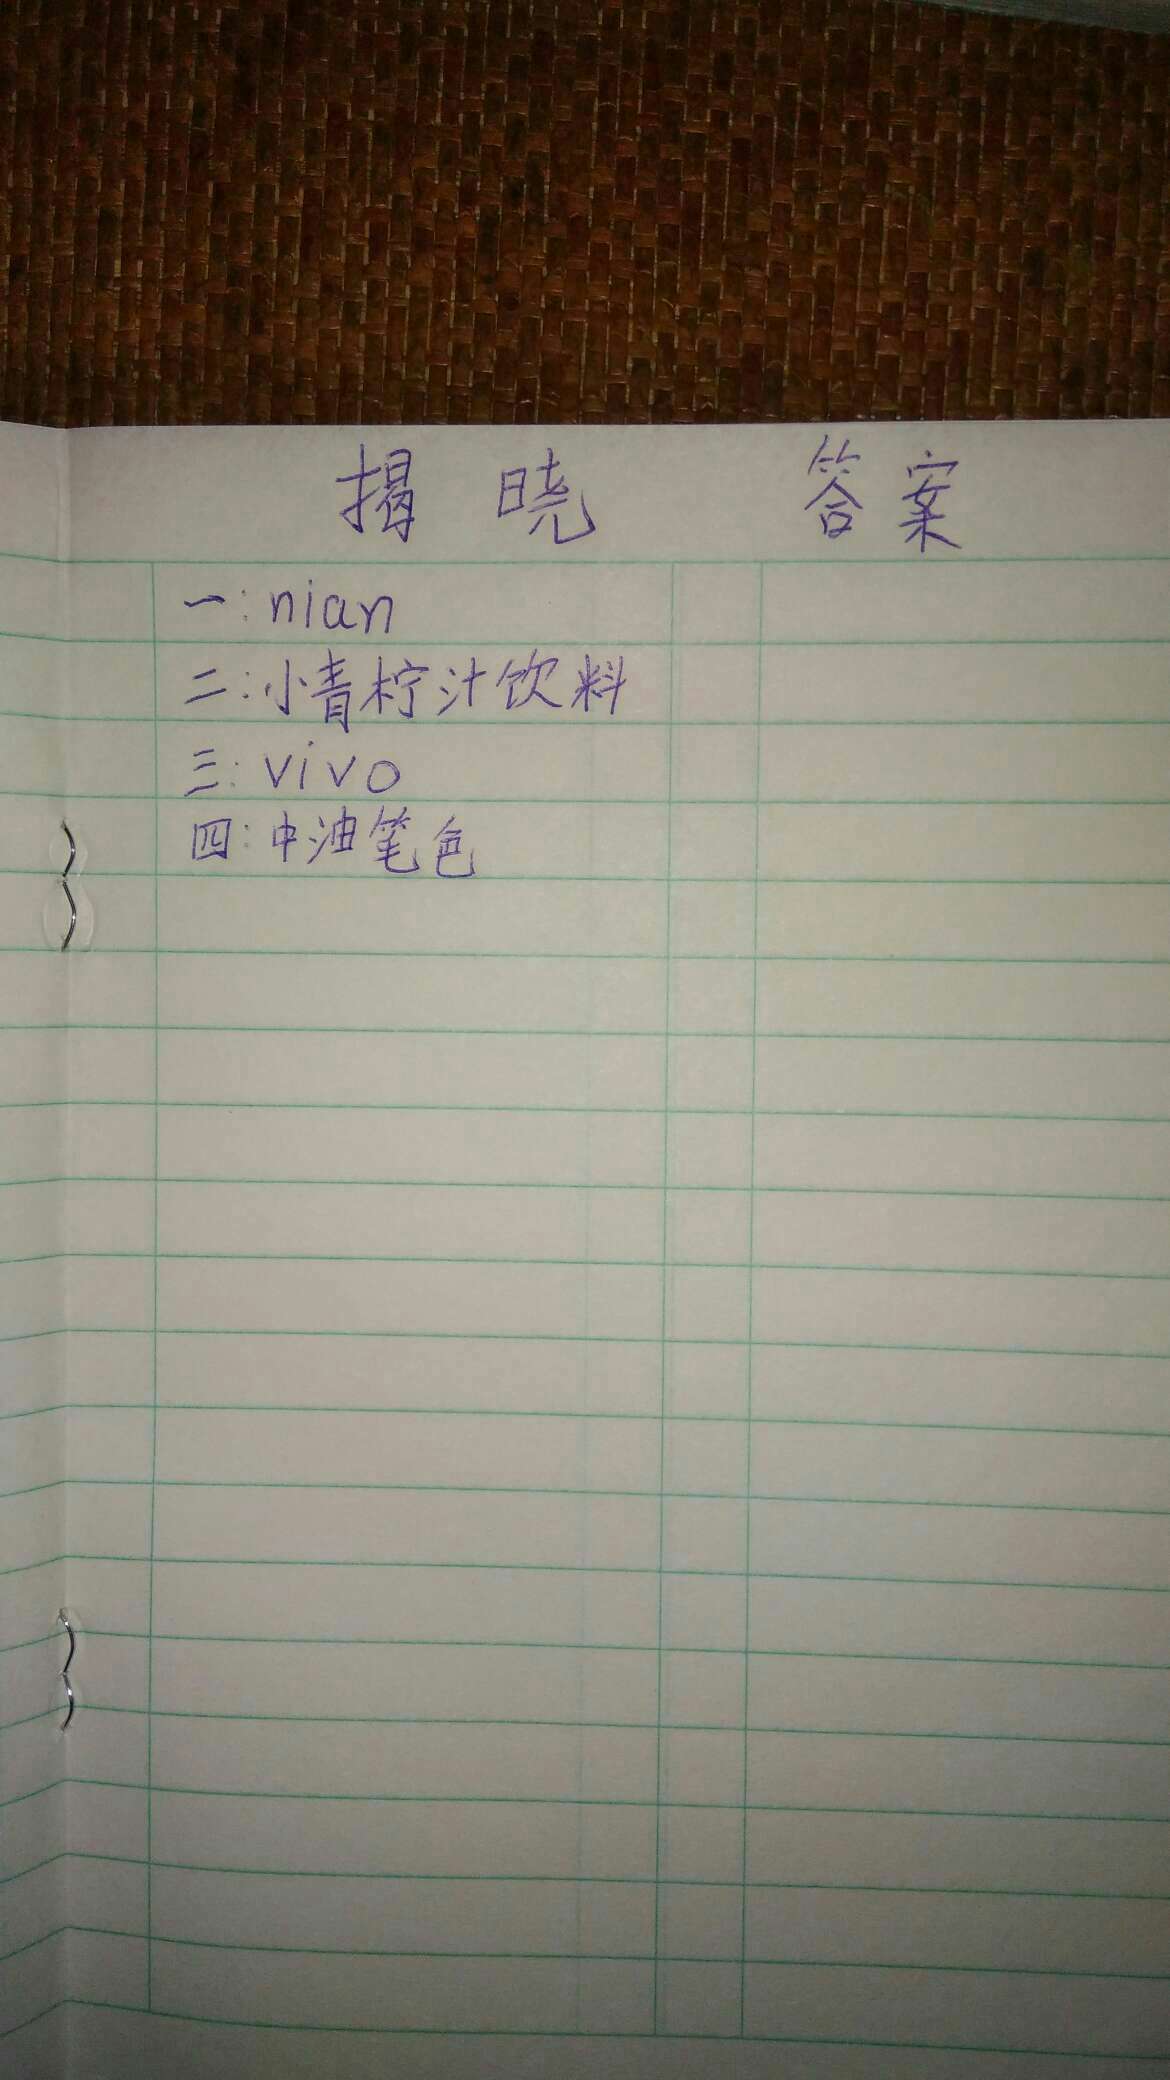 揭晓 答案
一:nian
二:小青柠汁饮料
三:vivo
四:中油笔色